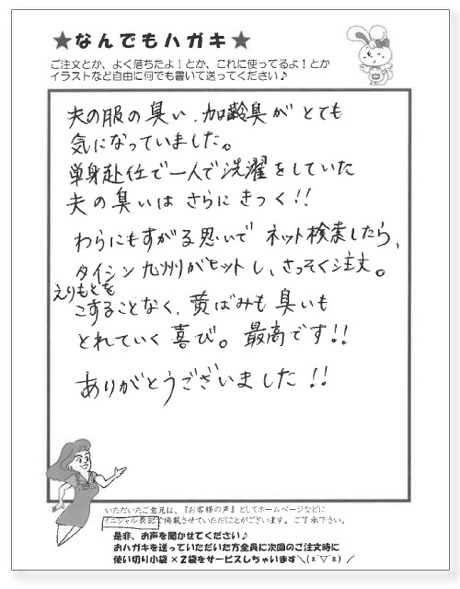 ★なんでもハガキ★
ご注文とか、よく落ちたよ！とか、これに使ってるよ！とか
イラストなど自由に何でも書いて送ってください♪
夫の服の臭い、加齢臭がとても
気になっていました。
単身赴任で一人で洗濯をしていた
夫の臭いはさらにきつく!!
わらにもすがる思いでネット検索したら、
タイシン九州がヒットし、さっそく注文。
えりもとを
こすることなく、黄ばみも臭いも
とれていく喜び。最高です!!
ありがとうございました!!
いただいたご意見は、『お客様の声』としてホームページなどに
イニシャル表記で掲載させていただくことがございます。ご了承下さい。
是非、お声を聞かせてください♪
おハガキを送っていただいた方全員に次回のご注文時に
使い切り小袋×2袋をサービスしちゃいます＼(*´▽`*)／